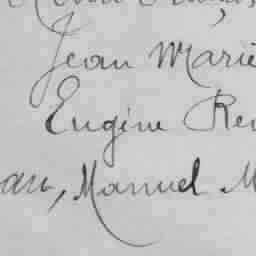 Jean Marie
Eugène Re
au, Manuel M